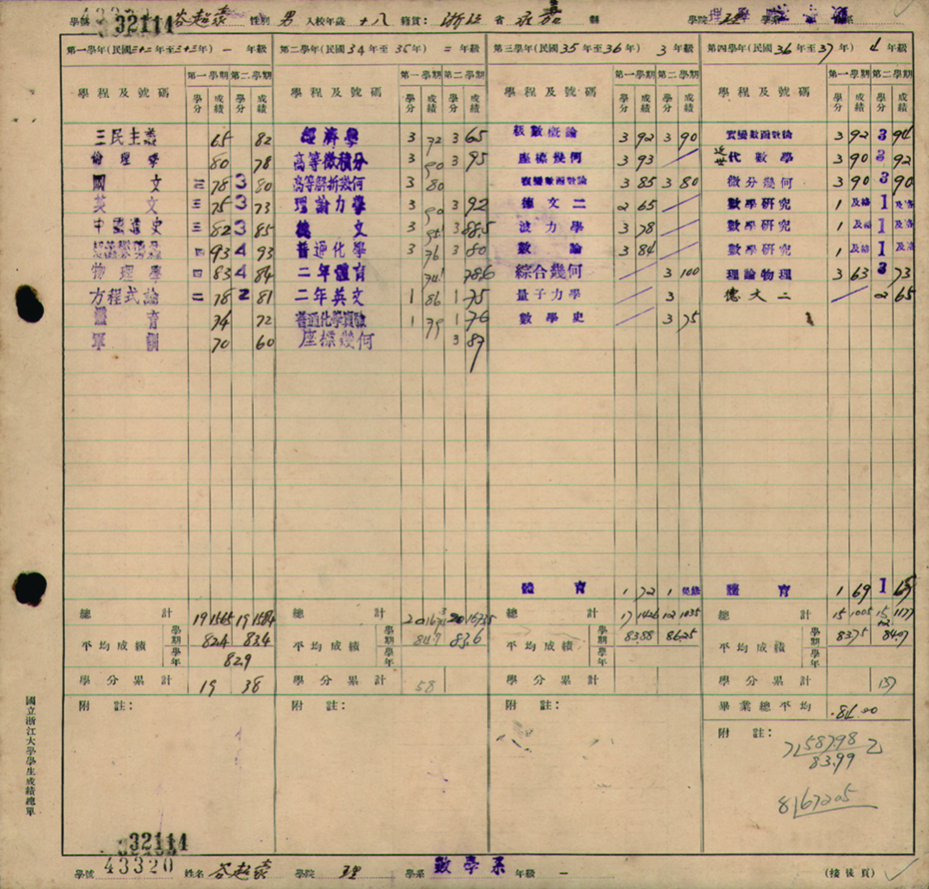 學號 32114 谷超豪 性別 男 入校年歲 十八 籍貫: 浙江 省 永嘉 縣 學院 理 學系
第一學年(民國三十二年至三十三年) 一 年級 第二學年(民國34年至35年) 二 年級 第三學年(民國35年至36年) 3 年級 第四學年(民國36年至37年) 4 年級
學程及號碼 第一學期 第二學期 學程及號碼 第一學期 第二學期 學程及號碼 第一學期 第二學期 學程及號碼 第一學期 第二學期
學分 成績 學分 成績 學分 成績 學分 成績 學分 成績 學分 成績 學分 成績 學分 成績
三民主義 65 82 經濟學 3 72 3 65 級數概論 3 92 3 90 實變數函數論 3 92 3 94
倫理學 80 78 高等微積分 3 90 3 95 座標幾何 3 93 近世代數學 3 90 3 92
國文 三 78 3 80 高等解析幾何 3 80 複變數函數論 3 85 3 80 微分幾何 3 90 3 90
英文 三 75 3 73 理論力學 3 90 3 92 德文二 2 65 數學研究 1 及格 1 及格
中國通史 三 82 3 85 文 3 3 88.5 波力學 3 78 數學研究 1 及格 1 及格
四 93 4 93 普通化學 3 76 3 80 數論 3 84 數學研究 1 及格 1 及格
物理學 四 83 4 84 二年體育 74 78.6 綜合幾何 3 100 理論物理 3 63 3 73
方程式論 二 78 2 81 二年英文 1 86 1 75 量子力學 3 德文二 2 65
體育 74 72 普通化學實驗 1 79 1 76 數學史 3 75
軍訓 70 60 座標幾何 3 87
體育 1 72 1 體育 1 69 1
總計 19 1565 19 1584 總計 20 20 總計 17 1426 12 1035 總計 15 1005 15 1177
平均成績 學期 82.4 83.4 平均成績 學期 84.9 83.6 平均成績 學期 83.88 86.25 平均成績 學期 83.75 84.07
學年 82.9 學年 學年 學年
學分累計 19 38 學分累計 58 學分累計 學分累計 137
附註: 附註: 附註: 畢業總平均 84.00
附註:
7 587.98
83.99
8 672.05
國立浙江大學學生成績總單
32114
學號 43320 姓名 谷超豪 學院 理 學系 數學系 年級 一 (接後頁)